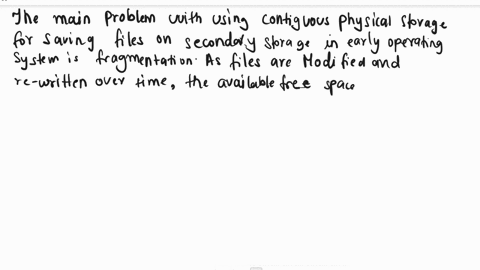 The main problem with using contiguous physical storage
for saving files on secondary storage in early operating
System is fragmentation. As files are Modified and
re-written over time, the available free space